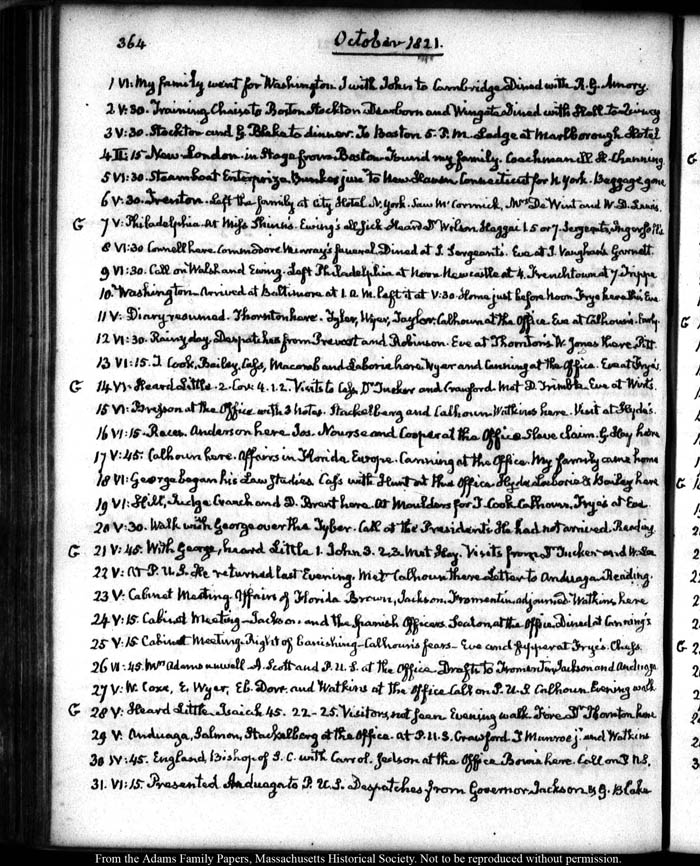 364 October 1821.
1 VI: My family went for Washington. I with John to Cambridge Dined with R. G. Amory.
2 V:30. Training Chaise to Boston Stockton Dearborn and Wingate Dined with Hall to Quincy
3 V:30. Stockton and G. Blake to dinner. To Boston 5. P.M. Lodge at Marlborough Hotel
4 III:15 New London in Stage from Boston Found my family. Coachman Ill Channing
5 VI:30. Steamboat Enterprize, Bunker, just to New Haven Connecticut for N York. Baggage gone
6 V:30. Trenton. Left the family at City Hotel N. York. Saw McCormick, Mrs De Wint and W. D. Lewis.
G 7 V: Philadelphia at Miss Ewing's all sick Heard Dr Wilson Haggai 1. 5 or 7. Sergeants, Ingersoll's
8 VI:30 Connell here. Commodore Murray's funeral. Dined at J. Sergeant's. Eve at J. Vaughan's Garnett.
9 VI:30. Call on Walsh and Ewing. Left Philadelphia at Noon Newcastle at 4. Frenchtown at 7 Trippe
10. Washington. Arrived at Baltimore at 1. A.M. left it at V:30. Home just before Noon. Frye here this Eve
11 V: Diary resumed. Thornton here. Tyler, Wyer, Taylor, Calhoun at the Office. Eve at Calhoun's.
12 VI:30. Rainy day. Despatches from Prevost and Robinson. Eve at Thornton's W. Jones there. Pitt.
13 VI:15. J. Cook, Bailey, Cass, Macomb and Laborie here Wyer and Canning at the Office. Eve at Frye's.
G 14 VI: Heard Little. 2. Cor: 4. 1. 2. Visits to Cass Dr Tucker and Crawford met D. Trimble Eve at Wirt's.
15 VI: Bresson at the Office with 3 Notes. Stackelberg and Calhoun. Watkins here. Visit at Hyde's.
16 VI:15. Races. Anderson here Jos. Nourse and Cooper at the Office Slave claim. G. Hay here
17 V:45: Calhoun here. Affairs in Florida Europe. Canning at the Office. My family came home
18 VI: George began his Law Studies Cass with Hunt at the Office Hyde Laborie & Bailey here
19 VI: Hill, Judge Cranch and D. Brent here. At Moulders for J. Cook Calhoun. Frye's at Eve
20 V:30. Walk with George over the Tyber. Call at the President's He had not arrived. Reading
G 21 V:45. With George, heard Little 1. John 3. 2.3. Met Hay. Visits from Dr Tucker and W. Lee
22 V: At P.U.S. He returned last Evening. Met Calhoun there Letter to Anduaga. Reading.
23 V: Cabinet Meeting. Affairs of Florida Brown, Jackson, Fromentin, adjourned Watkins here
24 V:15. Cabinet Meeting—Jackson and the Spanish Officers. Seaton at the Office. Dined at Canning's
25 V:15 Cabinet Meeting. Right of banishing—Calhoun's fears—Eve and supper at Frye's. Chess.
26 VI:45. Mrs Adams unwell. A. Scott and P.U.S. at the Office. Drafts to Fromentin, Jackson and Anduaga
27 V: W. Coxe, E. Wyer, Eb. Dorr. and Watkins at the Office Call on P.U.S. Calhoun. Evening walk
G 28 V: Heard Little. Isaiah 45. 22-25. Visitors, not seen Evening walk. Dr Thornton here
29 V: Anduaga, Salmon, Stackelberg at the Office. At P.U.S. Crawford J Munroe jr. and Watkins
30 IV:45. England, Bishop of S. C. with Carrol. Judson at the Office Bowie here. Call on P.U.S.
31. VI:15. Presented Anduaga to P.U.S. Despatches from Governor Jackson by G. Blake
From the Adams Family Papers, Massachusetts Historical Society. Not to be reproduced without permission.